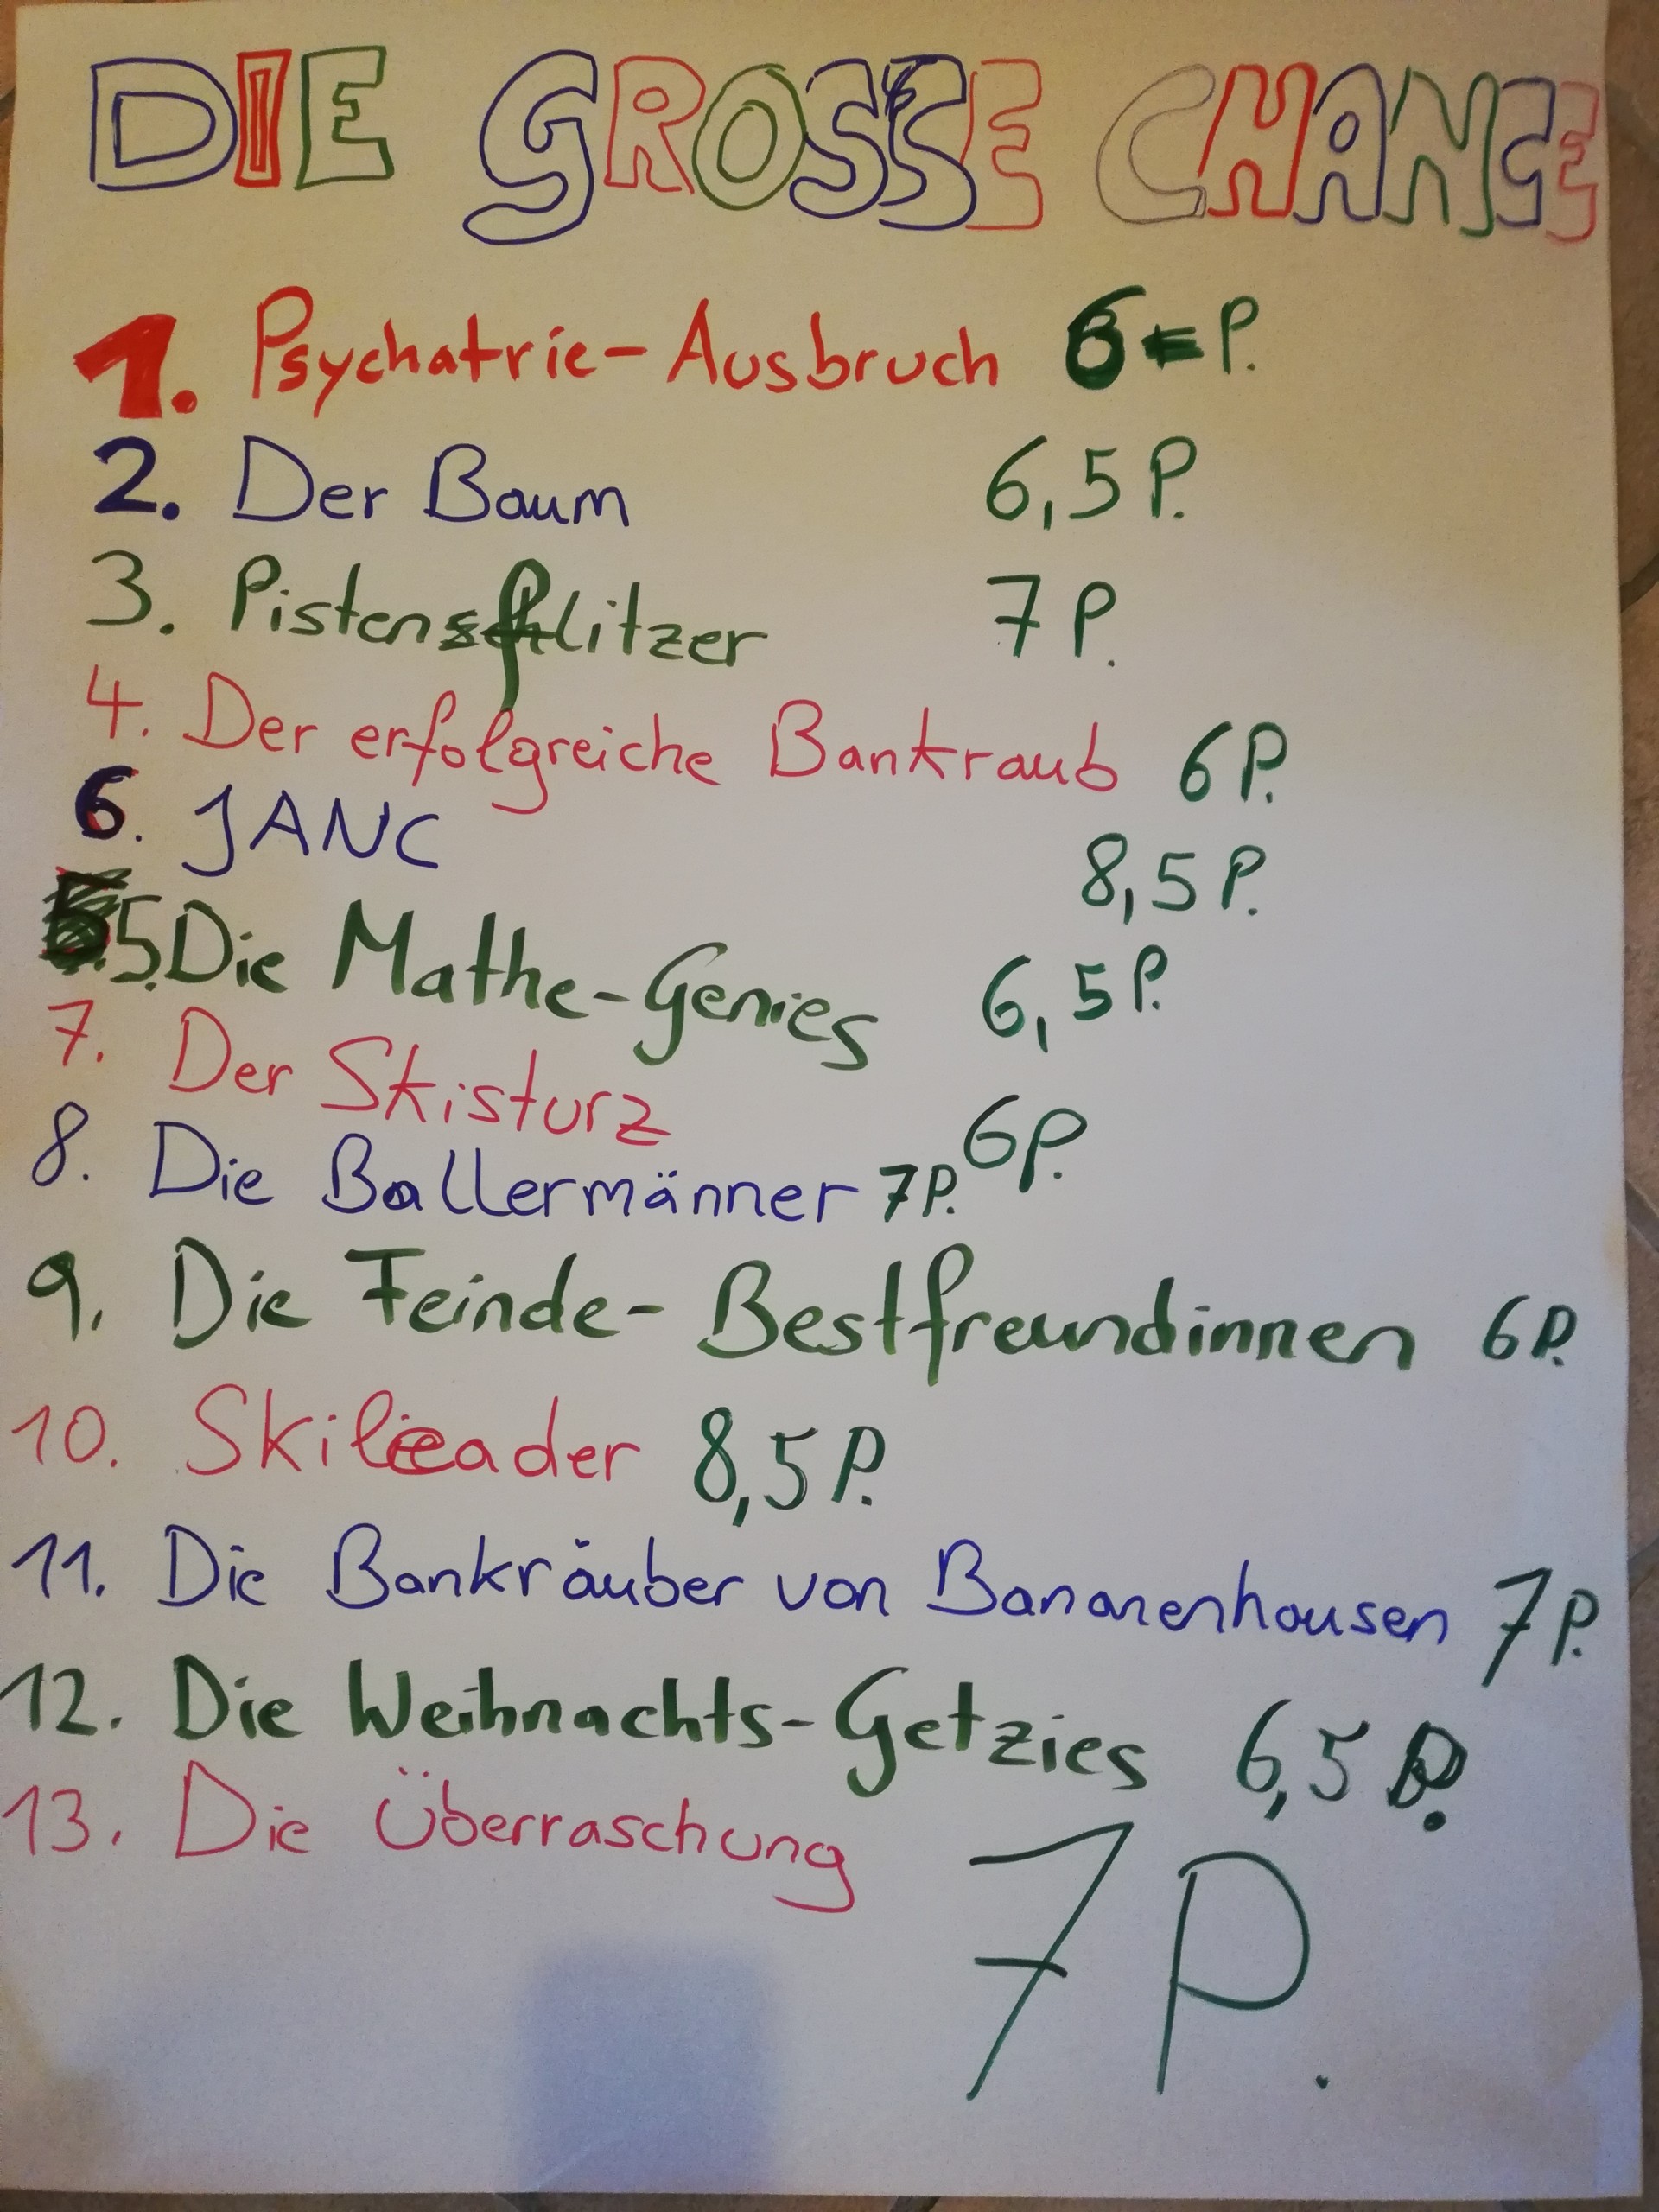 DIE GROSSE CHANCE
1. Psychatrie-Ausbruch 6 P.
2. Der Baum 6,5 P.
3. Pistenflitzer 7 P.
4. Der erfolgreiche Bankraub 6 P.
6. JANC 8,5 P.
5. Die Mathe-Genies 6,5 P.
7. Der Skisturz 6 P.
8. Die Ballermänner 7 P.
9. Die Feinde-Bestfreundinnen 6 P.
10. Skileader 8,5 P.
11. Die Bankräuber von Bananenhausen 7 P.
12. Die Weihnachts-Getzies 6,5 P.
13. Die Überraschung 7 P.